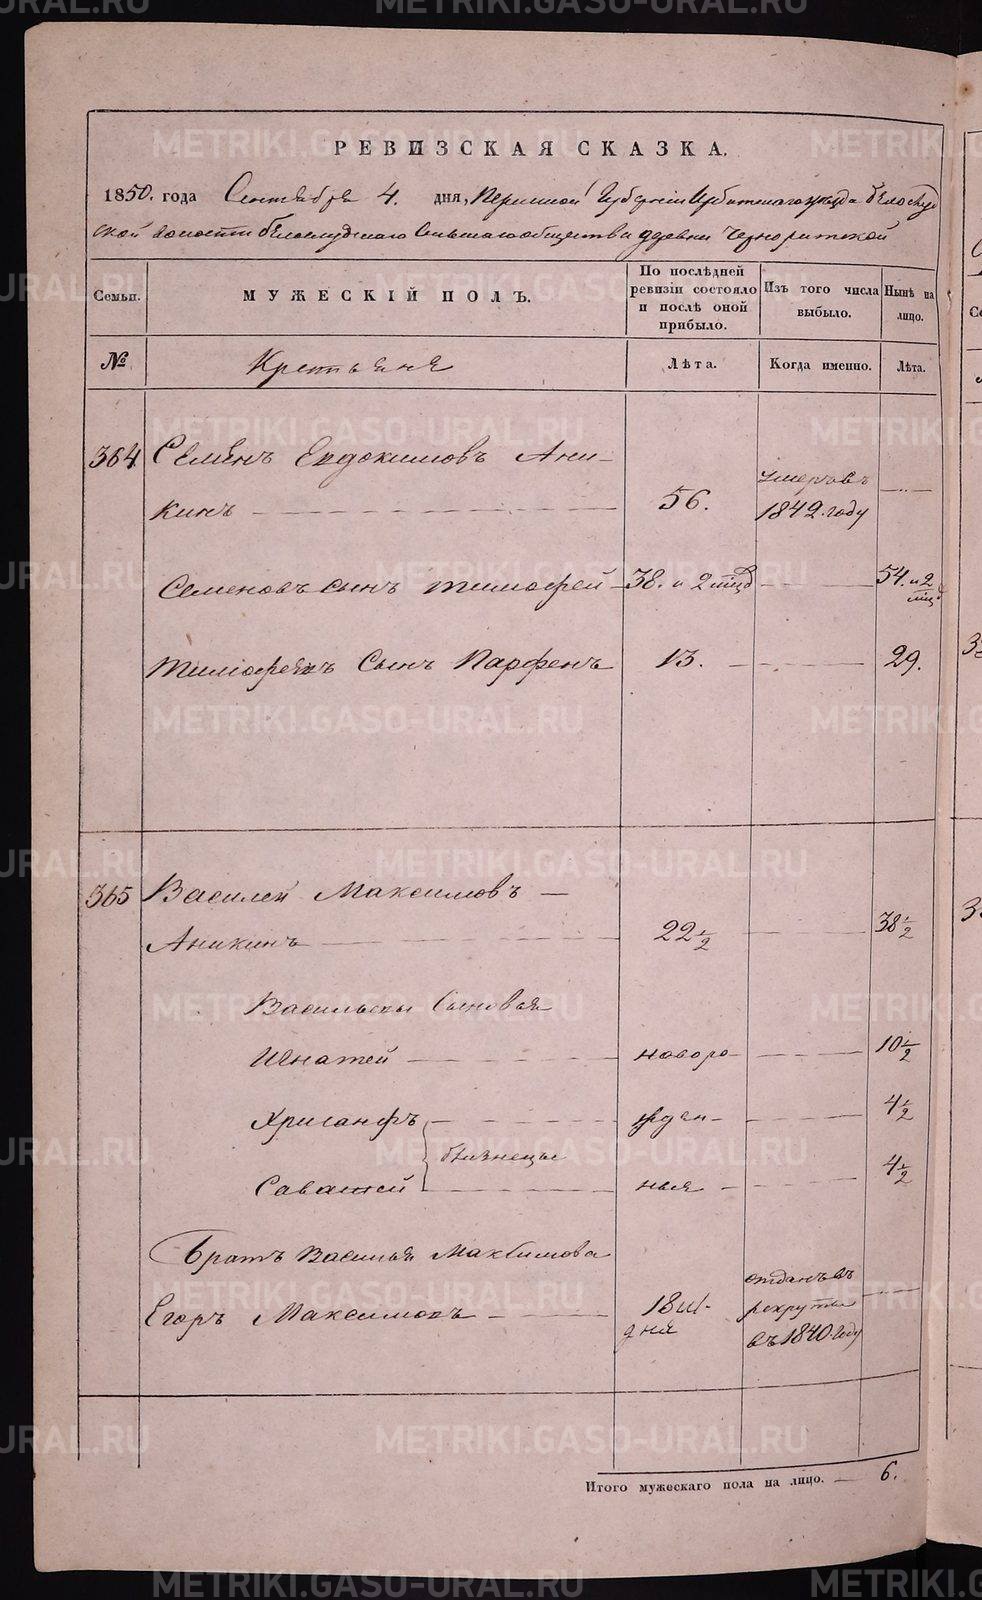 РЕВИЗСКАЯ СКАЗКА.
1850. года Сентября 4. дня, Пермской Губернiи Ирбитскаго уезда Белослуд
ской волости Белослудскаго Сельскаго общества деревни Чернорицкой
Семьи. МУЖЕСКIЙ ПОЛЪ. По послѣдней ревизiи состояло и послѣ оной прибыло. Изъ того числа выбыло. Нынѣ на лицо.
№ Крестьяне Лѣта. Когда именно. Лѣта.
364 Семенъ Евдокимовъ Ани-
кинъ 56. умеръ въ 1842 году
Семеновъ сынъ Тимофей 38. и 2 мсц 54. и 2 мсц
Тимофеевъ Сынъ Парфенъ 13. 29.
365 Василей Максимовъ
Аникинъ 22 1/2 38 1/2
Васильевы Сыновья
Игнатей новоро- 10 1/2
Хрисанфъ жден- 4 1/2
близнецы
Саватей ныя 4 1/2
Братъ Василья Максимова
Егоръ Максимовъ 18 и 1- дня отданъ въ рекруты въ 1840 году
Итого мужескаго пола на лицо. 6.
METRIKI.GASO-URAL.RU